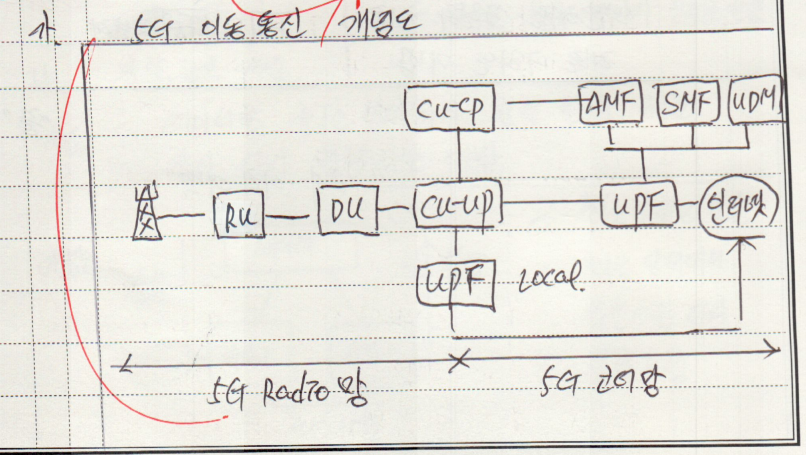 가. 5G 이동통신 개념도
CU-CP AMF SMF UDM
RU DU CU-UP UPF 인터넷
UPF Local.
5G Radio망 5G 코어망